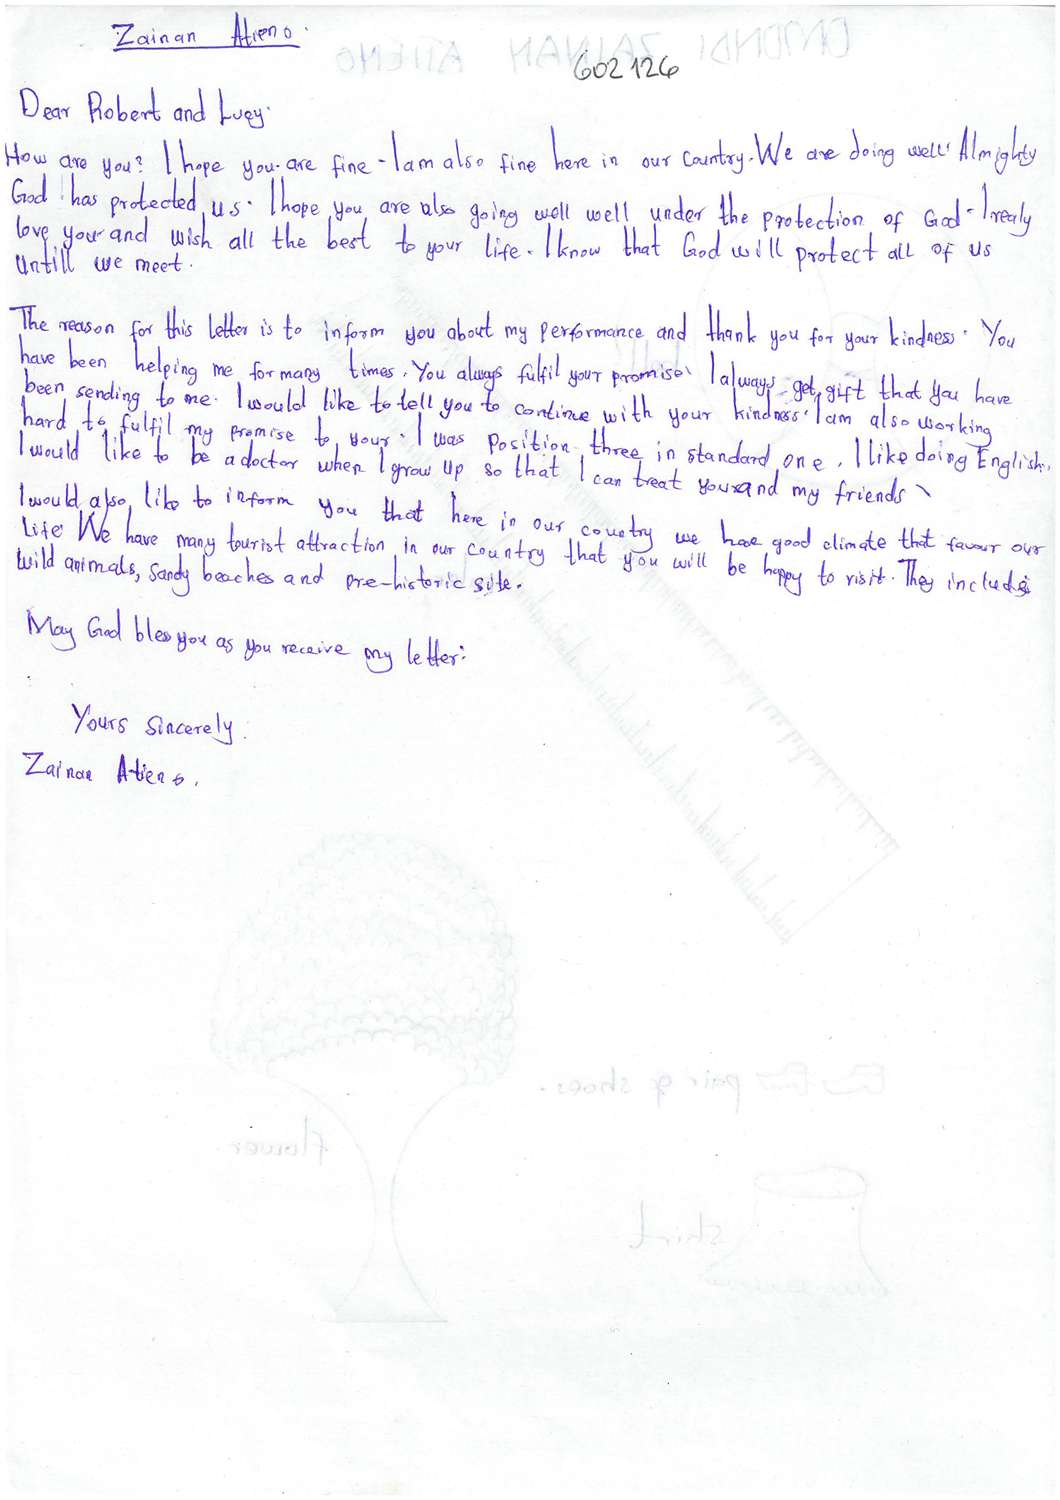 Zainan Atieno.
602126
Dear Robert and Lucy.
How are you? I hope you are fine - I am also fine here in our country. We are doing well. Almighty
God has protected us. I hope you are also going well well under the protection of God - I realy
love you and wish all the best to your life. I know that God will protect all of us
Untill we meet.
The reason for this letter is to inform you about my performance and thank you for your kindness. You
have been helping me for many times. You always fulfil your promise. I always get gift that you have
been sending to me. I would like to tell you to continue with your kindness. I am also working
hard to fulfil my promise to your. I was position three in standard one. I like doing English.
I would like to be a doctor when I grow up so that I can treat your and my friends
I would also like to inform you that here in our country we have good climate that favour our
Life. We have many tourist attraction in our country that you will be happy to visit. They include
Wild animals, sandy beaches and pre-historic site.
May God bless you as you receive my letter.
Yours sincerely.
Zainan Atieno.
OMONDI ZAINAH ATIENO
pair of shoes.
flower
shirt